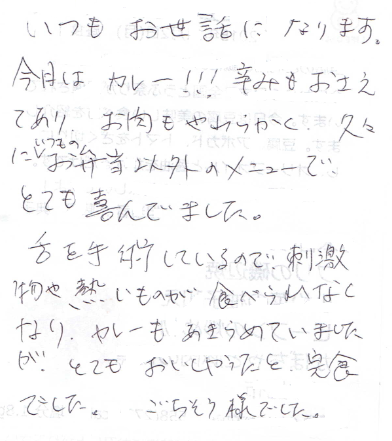 いつも お世話に なります。
今月は カレー!!! 辛みもおさえ
てあり お肉もやわらかく、久々
に いつもの お弁当以外のメニューで
とても 喜んでました。
舌を手術しているので 刺激
物や 熱いものが 食べられなく
なり、カレーも あきらめていました
が、とても おいしかったと 完食
でした。 ごちそう様でした。